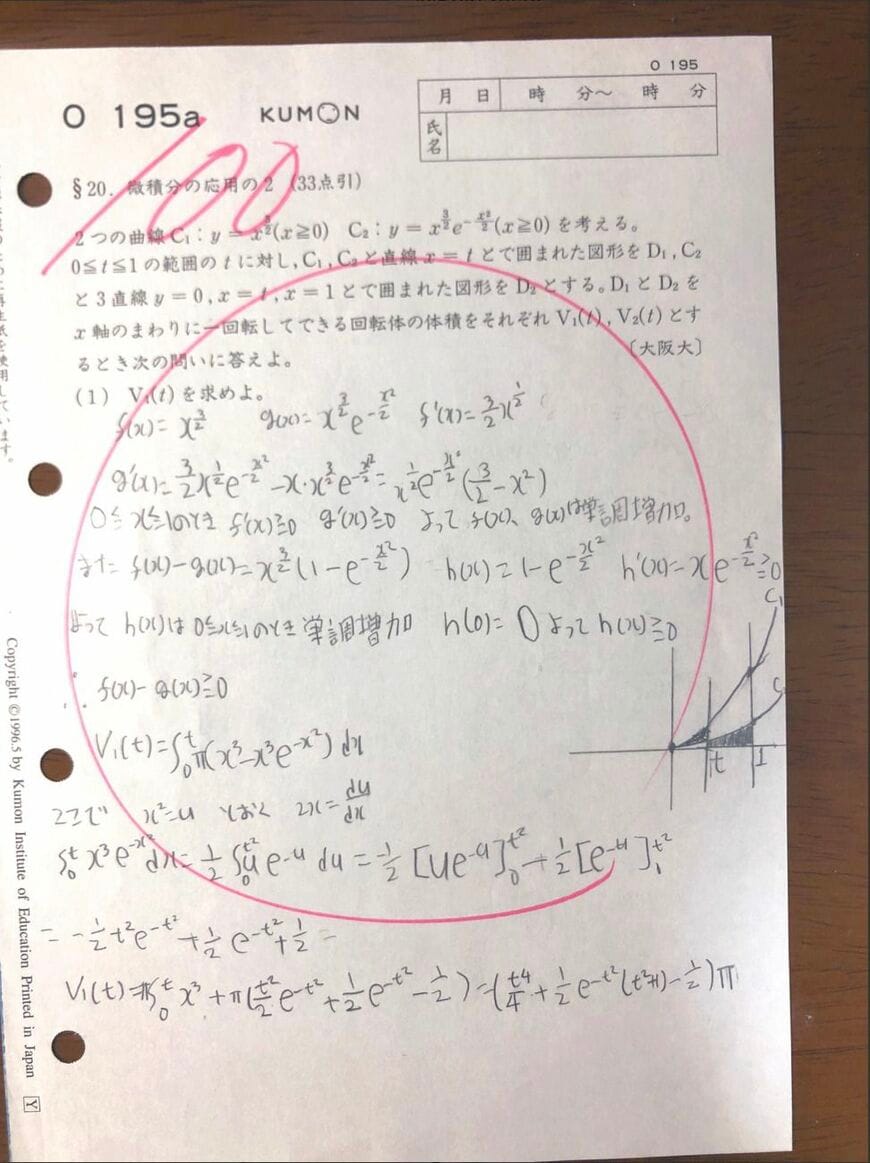 O 195
O 195a KUMON
月 日 時 分〜 時 分
氏名
100
§20. 微積分の応用の2 (33点引)
2つの曲線C₁：y = x^{3/2}(x≧0) C₂：y = x^{3/2}e^{-x²/2}(x≧0) を考える。
0≦t≦1の範囲のtに対し, C₁, C₂と直線x = tとで囲まれた図形をD₁, C₂
と3直線y = 0, x = t, x = 1とで囲まれた図形をD₂とする。D₁とD₂を
x軸のまわりに一回転してできる回転体の体積をそれぞれV₁(t), V₂(t)とす
るとき次の問いに答えよ。 〔大阪大〕
(1) V₁(t)を求めよ。
f(x)= x^{3/2} g(x)= x^{3/2}e^{-x²/2} f'(x)= 3/2 x^{1/2}
g'(x)= 3/2 x^{1/2}e^{-x²/2} - x・x^{3/2}e^{-x²/2} = x^{1/2}e^{-x²/2}(3/2 - x²)
0≦x≦1のとき f'(x)≧0 g'(x)≧0 よって f(x)、g(x)は単調増加。
また f(x)-g(x)= x^{3/2}(1-e^{-x²/2}) h(x)=1-e^{-x²/2} h'(x)= xe^{-x²/2}≧0
よって h(x)は 0≦x≦1のとき 単調増加 h(0)= 0 よって h(x)≧0
∴ f(x)-g(x)≧0
C₁
C
t 1
V₁(t)=∫₀ᵗπ(x³-x³e^{-x²})dx
ここで x²=u とおく 2x= du/dx
∫₀ᵗ x³e^{-x²}dx= 1/2 ∫₀^{t²} u e^{-u} du = -1/2 [ue^{-u}]₀^{t²} + 1/2 [e^{-u}]₁^{t²}
= -1/2 t²e^{-t²} + 1/2 e^{-t²} + 1/2 =
V₁(t)=π∫₀ᵗ x³ + π(t²/2 e^{-t²} + 1/2 e^{-t²} - 1/2) = (t⁴/4 + 1/2 e^{-t²}(t²+1) - 1/2)π
Copyright ©1996.5 by Kumon Institute of Education Printed in Japan Y